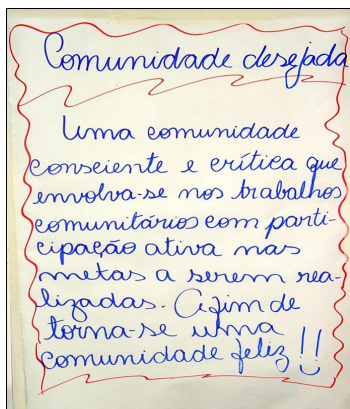 Comunidade desejada
Uma comunidade
consciente e crítica que
envolva-se nos trabalhos
comunitários com parti-
cipação ativa nas
metas a serem rea-
lizadas. Afim de
torna-se uma
comunidade feliz!!